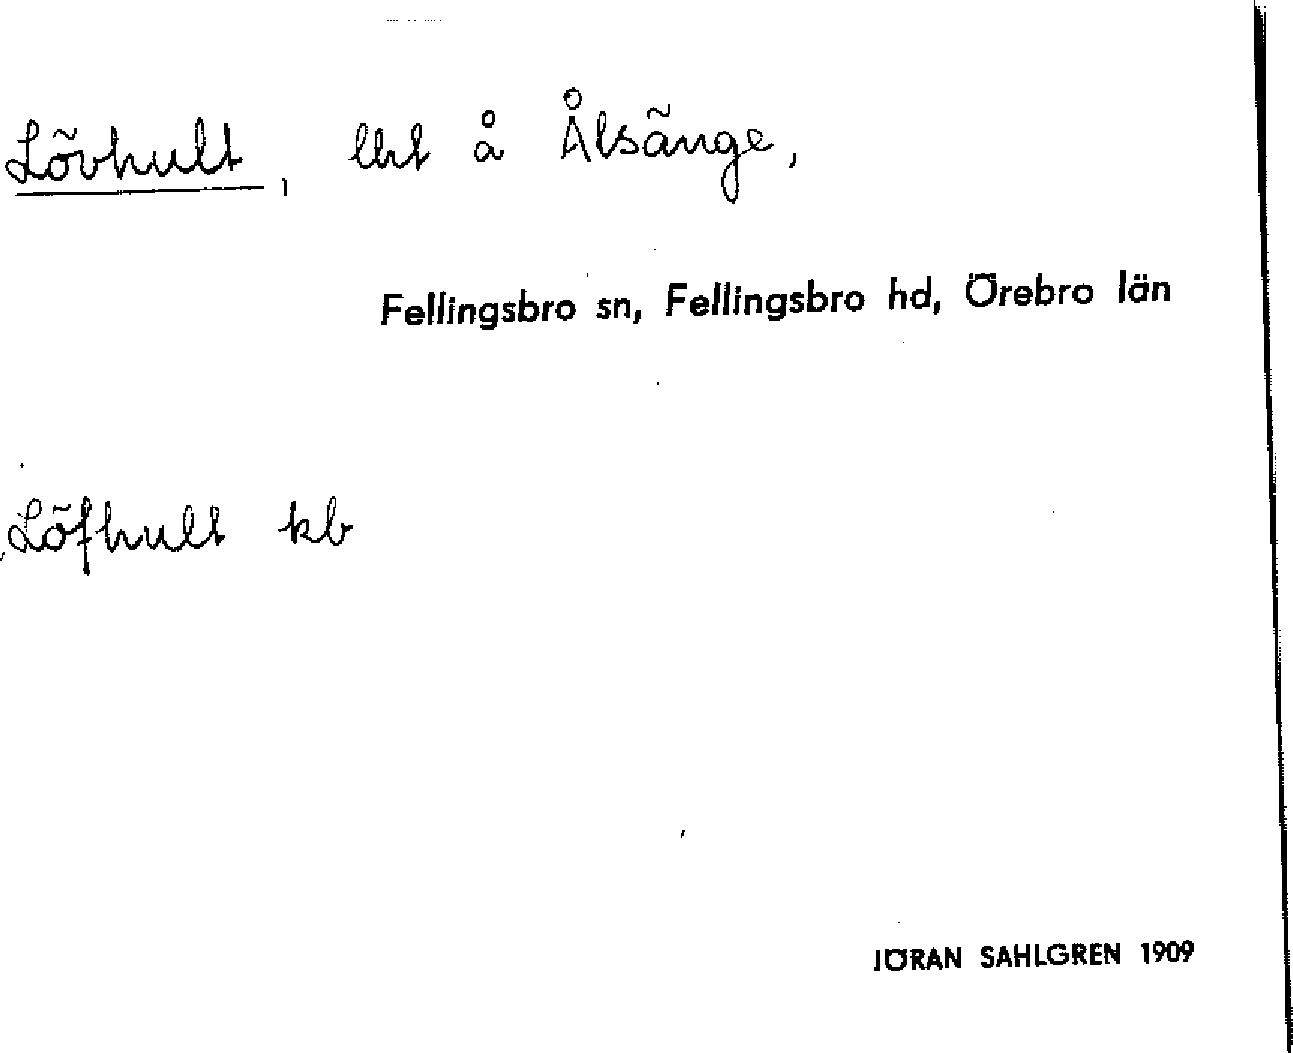 Lövhult, lht å Ålsänge,
Fellingsbro sn, Fellingsbro hd, Örebro län
Löfhult kb
JÖRAN SAHLGREN 1909